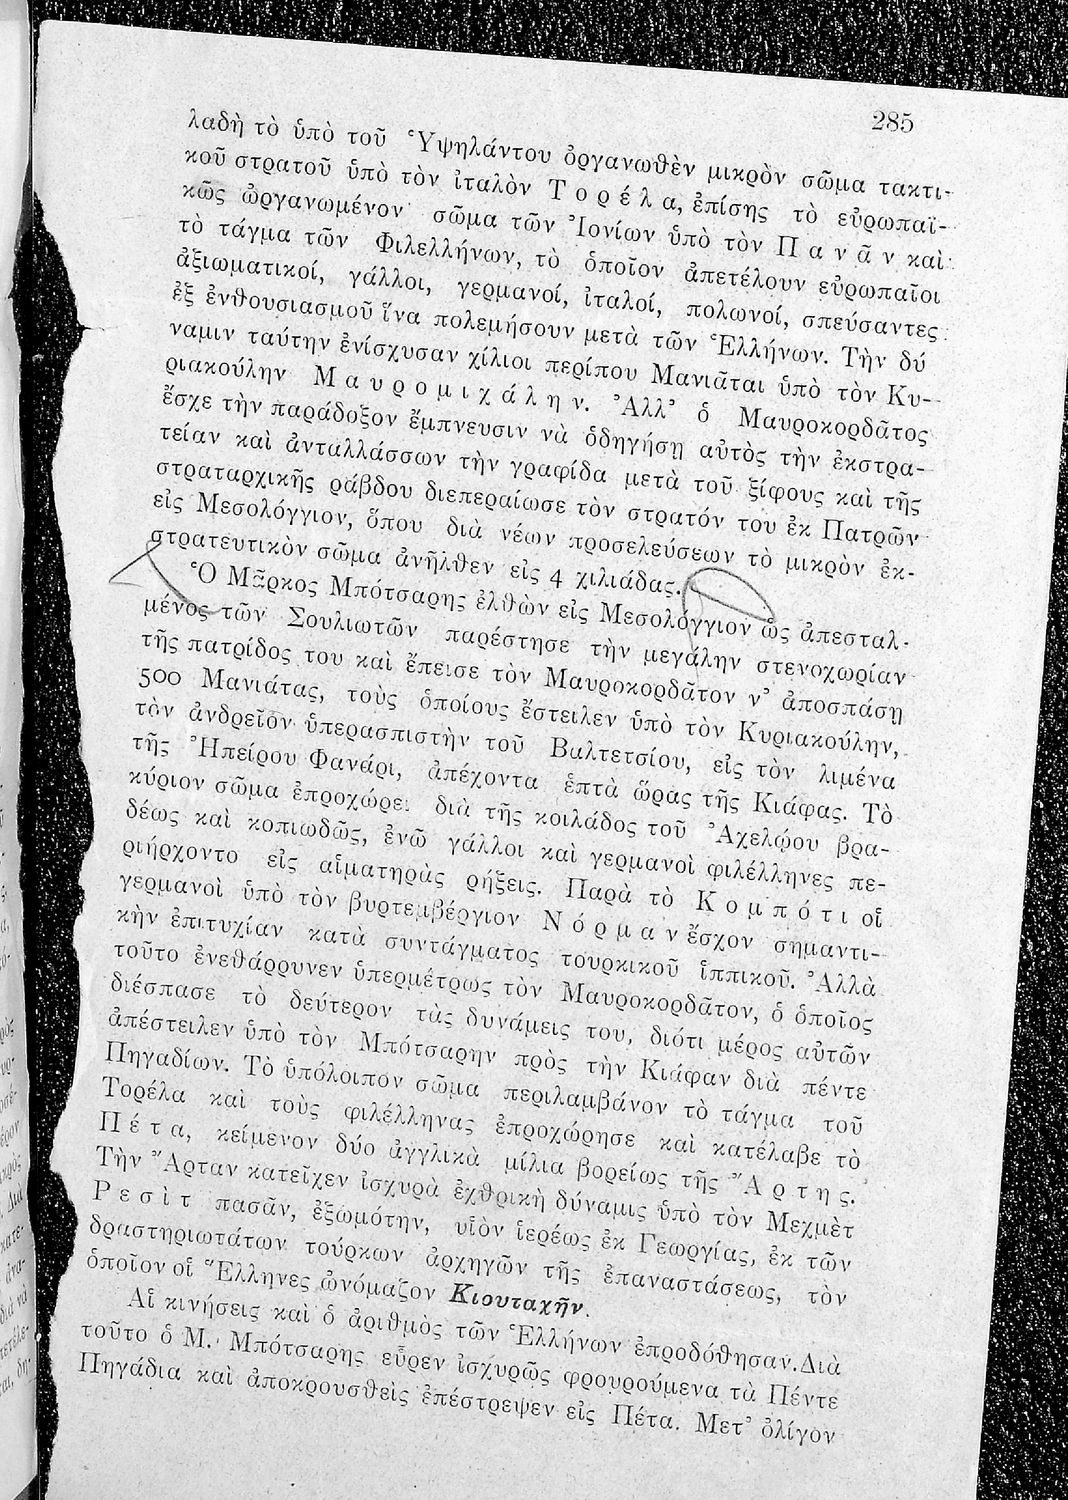 285
λαδὴ τὸ ὑπὸ τοῦ Ὑψηλάντου ὀργανωθὲν μικρὸν σῶμα τακτι-
κοῦ στρατοῦ ὑπὸ τὸν ἰταλὸν Τορέλα, ἐπίσης τὸ εὐρωπαϊ-
κῶς ὠργανωμένον σῶμα τῶν Ἰονίων ὑπὸ τὸν Πανᾶν καὶ
τὸ τάγμα τῶν Φιλελλήνων, τὸ ὁποῖον ἀπετέλουν εὐρωπαῖοι
ἀξιωματικοί, γάλλοι, γερμανοί, ἰταλοί, πολωνοί, σπεύσαντες
ἐξ ἐνθουσιασμοῦ ἵνα πολεμήσουν μετὰ τῶν Ἑλλήνων. Τὴν δύ
ναμιν ταύτην ἐνίσχυσαν χίλιοι περίπου Μανιᾶται ὑπὸ τὸν Κυ-
ριακούλην Μαυρομιχάλην. Ἀλλ’ ὁ Μαυροκορδᾶτος
ἔσχε τὴν παράδοξον ἔμπνευσιν νὰ ὁδηγήσῃ αὐτὸς τὴν ἐκστρα-
τείαν καὶ ἀνταλλάσσων τὴν γραφίδα μετὰ τοῦ ξίφους καὶ τῆς
στραταρχικῆς ράβδου διεπεραίωσε τὸν στρατόν του ἐκ Πατρῶν
εἰς Μεσολόγγιον, ὅπου διὰ νέων προσελεύσεων τὸ μικρὸν ἐκ-
στρατευτικὸν σῶμα ἀνῆλθεν εἰς 4 χιλιάδας.
Ὁ Μᾶρκος Μπότσαρης ἐλθὼν εἰς Μεσολόγγιον ὡς ἀπεσταλ-
μένος τῶν Σουλιωτῶν παρέστησε τὴν μεγάλην στενοχωρίαν
τῆς πατρίδος του καὶ ἔπεισε τὸν Μαυροκορδᾶτον ν’ ἀποσπάσῃ
500 Μανιάτας, τοὺς ὁποίους ἔστειλεν ὑπὸ τὸν Κυριακούλην,
τὸν ἀνδρεῖον ὑπερασπιστὴν τοῦ Βαλτετσίου, εἰς τὸν λιμένα
τῆς Ἠπείρου Φανάρι, ἀπέχοντα ἑπτὰ ὥρας τῆς Κιάφας. Τὸ
κύριον σῶμα ἐπροχώρει διὰ τῆς κοιλάδος τοῦ Ἀχελῴου βρα-
δέως καὶ κοπιωδῶς, ἐνῶ γάλλοι καὶ γερμανοὶ φιλέλληνες πε-
ριήρχοντο εἰς αἱματηρὰς ρήξεις. Παρὰ τὸ Κομπότι οἱ
γερμανοὶ ὑπὸ τὸν βυρτεμβέργιον Νόρμαν ἔσχον σημαντι-
κὴν ἐπιτυχίαν κατὰ συντάγματος τουρκικοῦ ἱππικοῦ. Ἀλλὰ
τοῦτο ἐνεθάρρυνεν ὑπερμέτρως τὸν Μαυροκορδᾶτον, ὁ ὁποῖος
διέσπασε τὸ δεύτερον τὰς δυνάμεις του, διότι μέρος αὐτῶν
ἀπέστειλεν ὑπὸ τὸν Μπότσαρην πρὸς τὴν Κιάφαν διὰ πέντε
Πηγαδίων. Τὸ ὑπόλοιπον σῶμα περιλαμβάνον τὸ τάγμα τοῦ
Τορέλα καὶ τοὺς φιλέλληνας ἐπροχώρησε καὶ κατέλαβε τὸ
Πέτα, κείμενον δύο ἀγγλικὰ μίλια βορείως τῆς Ἄρτης.
Τὴν Ἄρταν κατεῖχεν ἰσχυρὰ ἐχθρικὴ δύναμις ὑπὸ τὸν Μεχμὲτ
Ρεσὶτ πασᾶν, ἐξωμότην, υἱὸν ἱερέως ἐκ Γεωργίας, ἐκ τῶν
δραστηριωτάτων τούρκων ἀρχηγῶν τῆς ἐπαναστάσεως, τὸν
ὁποῖον οἱ Ἕλληνες ὠνόμαζον Κιουταχῆν.
Αἱ κινήσεις καὶ ὁ ἀριθμὸς τῶν Ἑλλήνων ἐπροδόθησαν. Διὰ
τοῦτο ὁ Μ. Μπότσαρης εὗρεν ἰσχυρῶς φρουρούμενα τὰ Πέντε
Πηγάδια καὶ ἀποκρουσθεὶς ἐπέστρεψεν εἰς Πέτα. Μετ’ ὀλίγον